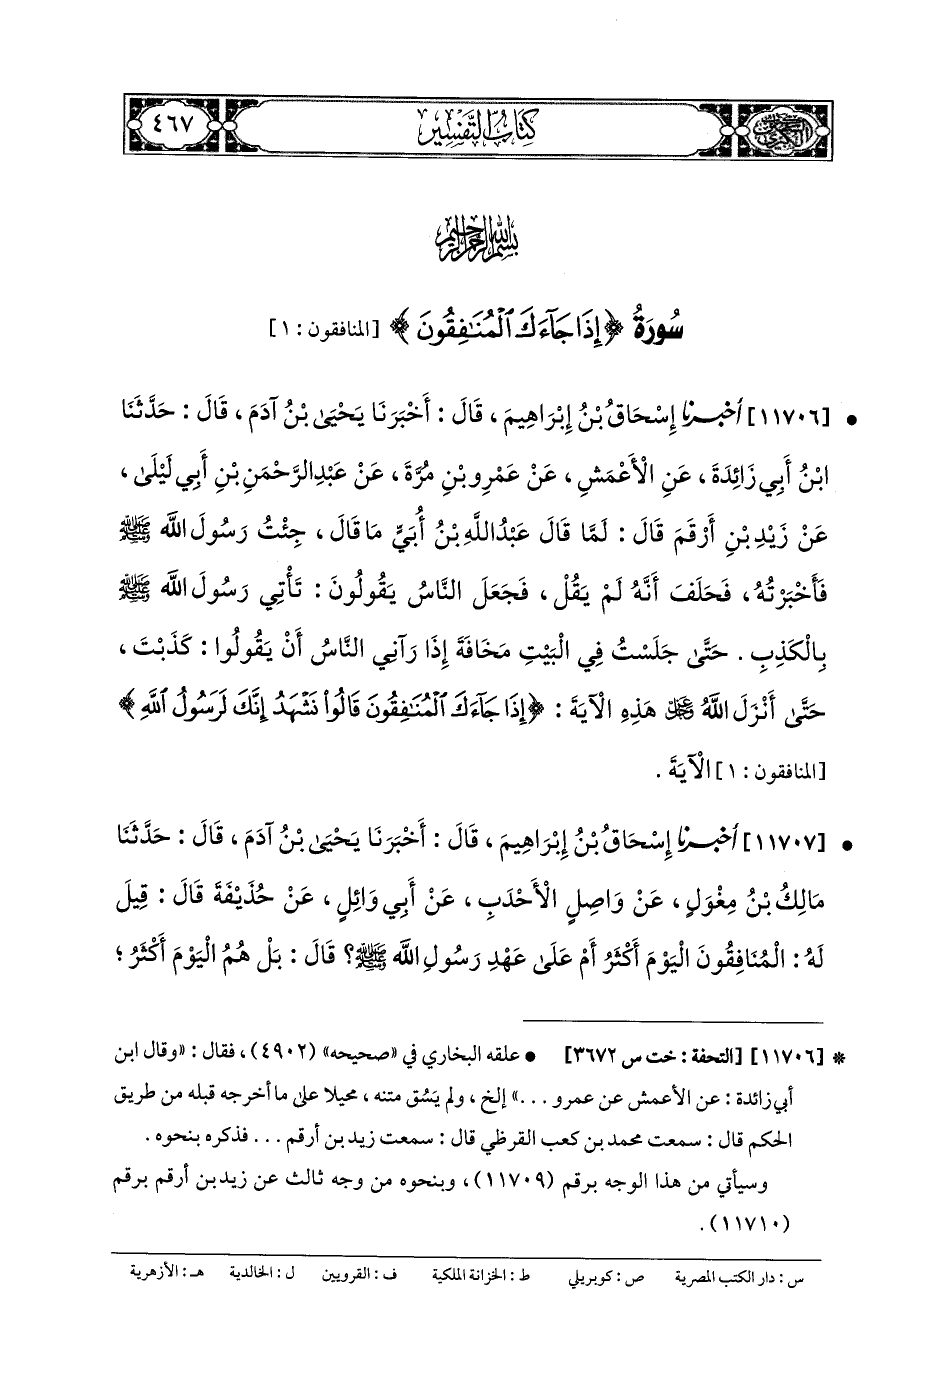 ٤٦٧
كتاب التفسير
الكبرى
بسم الله الرحمن الرحيم
سُورَةُ ﴿إِذَا جَآءَكَ ٱلْمُنَٰفِقُونَ﴾ [المنافقون: ١]
• [١١٧٠٦] أخبرنا إِسْحَاقُ بْنُ إِبْرَاهِيمَ، قَالَ: أَخْبَرَنَا يَحْيَىٰ بْنُ آدَمَ، قَالَ: حَدَّثَنَا
ابْنُ أَبِي زَائِدَةَ، عَنِ الْأَعْمَشِ، عَنْ عَمْرِو بْنِ مُرَّةَ، عَنْ عَبْدِ الرَّحْمَنِ بْنِ أَبِي لَيْلَىٰ،
عَنْ زَيْدِ بْنِ أَرْقَمَ قَالَ: لَمَّا قَالَ عَبْدُ اللَّهِ بْنُ أُبَيٍّ مَا قَالَ، جِئْتُ رَسُولَ اللَّه ﷺ
فَأَخْبَرْتُهُ، فَحَلَفَ أَنَّهُ لَمْ يَقُلْ، فَجَعَلَ النَّاسُ يَقُولُونَ: تَأْتِي رَسُولَ اللَّه ﷺ
بِالْكَذِبِ. حَتَّىٰ جَلَسْتُ فِي الْبَيْتِ مَخَافَةَ إِذَا رَآنِي النَّاسُ أَنْ يَقُولُوا: كَذَبْتَ،
حَتَّىٰ أَنْزَلَ اللَّهُ ﷻ هَذِهِ الْآيَةَ: ﴿إِذَا جَآءَكَ ٱلْمُنَٰفِقُونَ قَالُواْ نَشْهَدُ إِنَّكَ لَرَسُولُ ٱللَّهِ﴾
[المنافقون: ١] الْآيَةَ.
• [١١٧٠٧] أخبرنا إِسْحَاقُ بْنُ إِبْرَاهِيمَ، قَالَ: أَخْبَرَنَا يَحْيَىٰ بْنُ آدَمَ، قَالَ: حَدَّثَنَا
مَالِكُ بْنُ مِغْوَلٍ، عَنْ وَاصِلٍ الْأَحْدَبِ، عَنْ أَبِي وَائِلٍ، عَنْ حُذَيْفَةَ قَالَ: قِيلَ
لَهُ: الْمُنَافِقُونَ الْيَوْمَ أَكْثَرُ أَمْ عَلَىٰ عَهْدِ رَسُولِ اللَّه ﷺ؟ قَالَ: بَلْ هُمُ الْيَوْمَ أَكْثَرُ؛
* [١١٧٠٦] [التحفة: خت س ٣٦٧٢] • علقه البخاري في «صحيحه» (٤٩٠٢)، فقال: «وقال ابن
أبي زائدة: عن الأعمش عن عمرو ...» إلخ، ولم يَسُق متنه، محيلا على ما أخرجه قبله من طريق
الحكم قال: سمعت محمد بن كعب القرظي قال: سمعت زيد بن أرقم ... فذكره بنحوه.
وسيأتي من هذا الوجه برقم (١١٧٠٩)، وبنحوه من وجه ثالث عن زيد بن أرقم برقم
(١١٧١٠).
س: دار الكتب المصرية ص: كوبريلي ط: الخزانة الملكية ف: القرويين ل: الخالدية هـ: الأزهرية